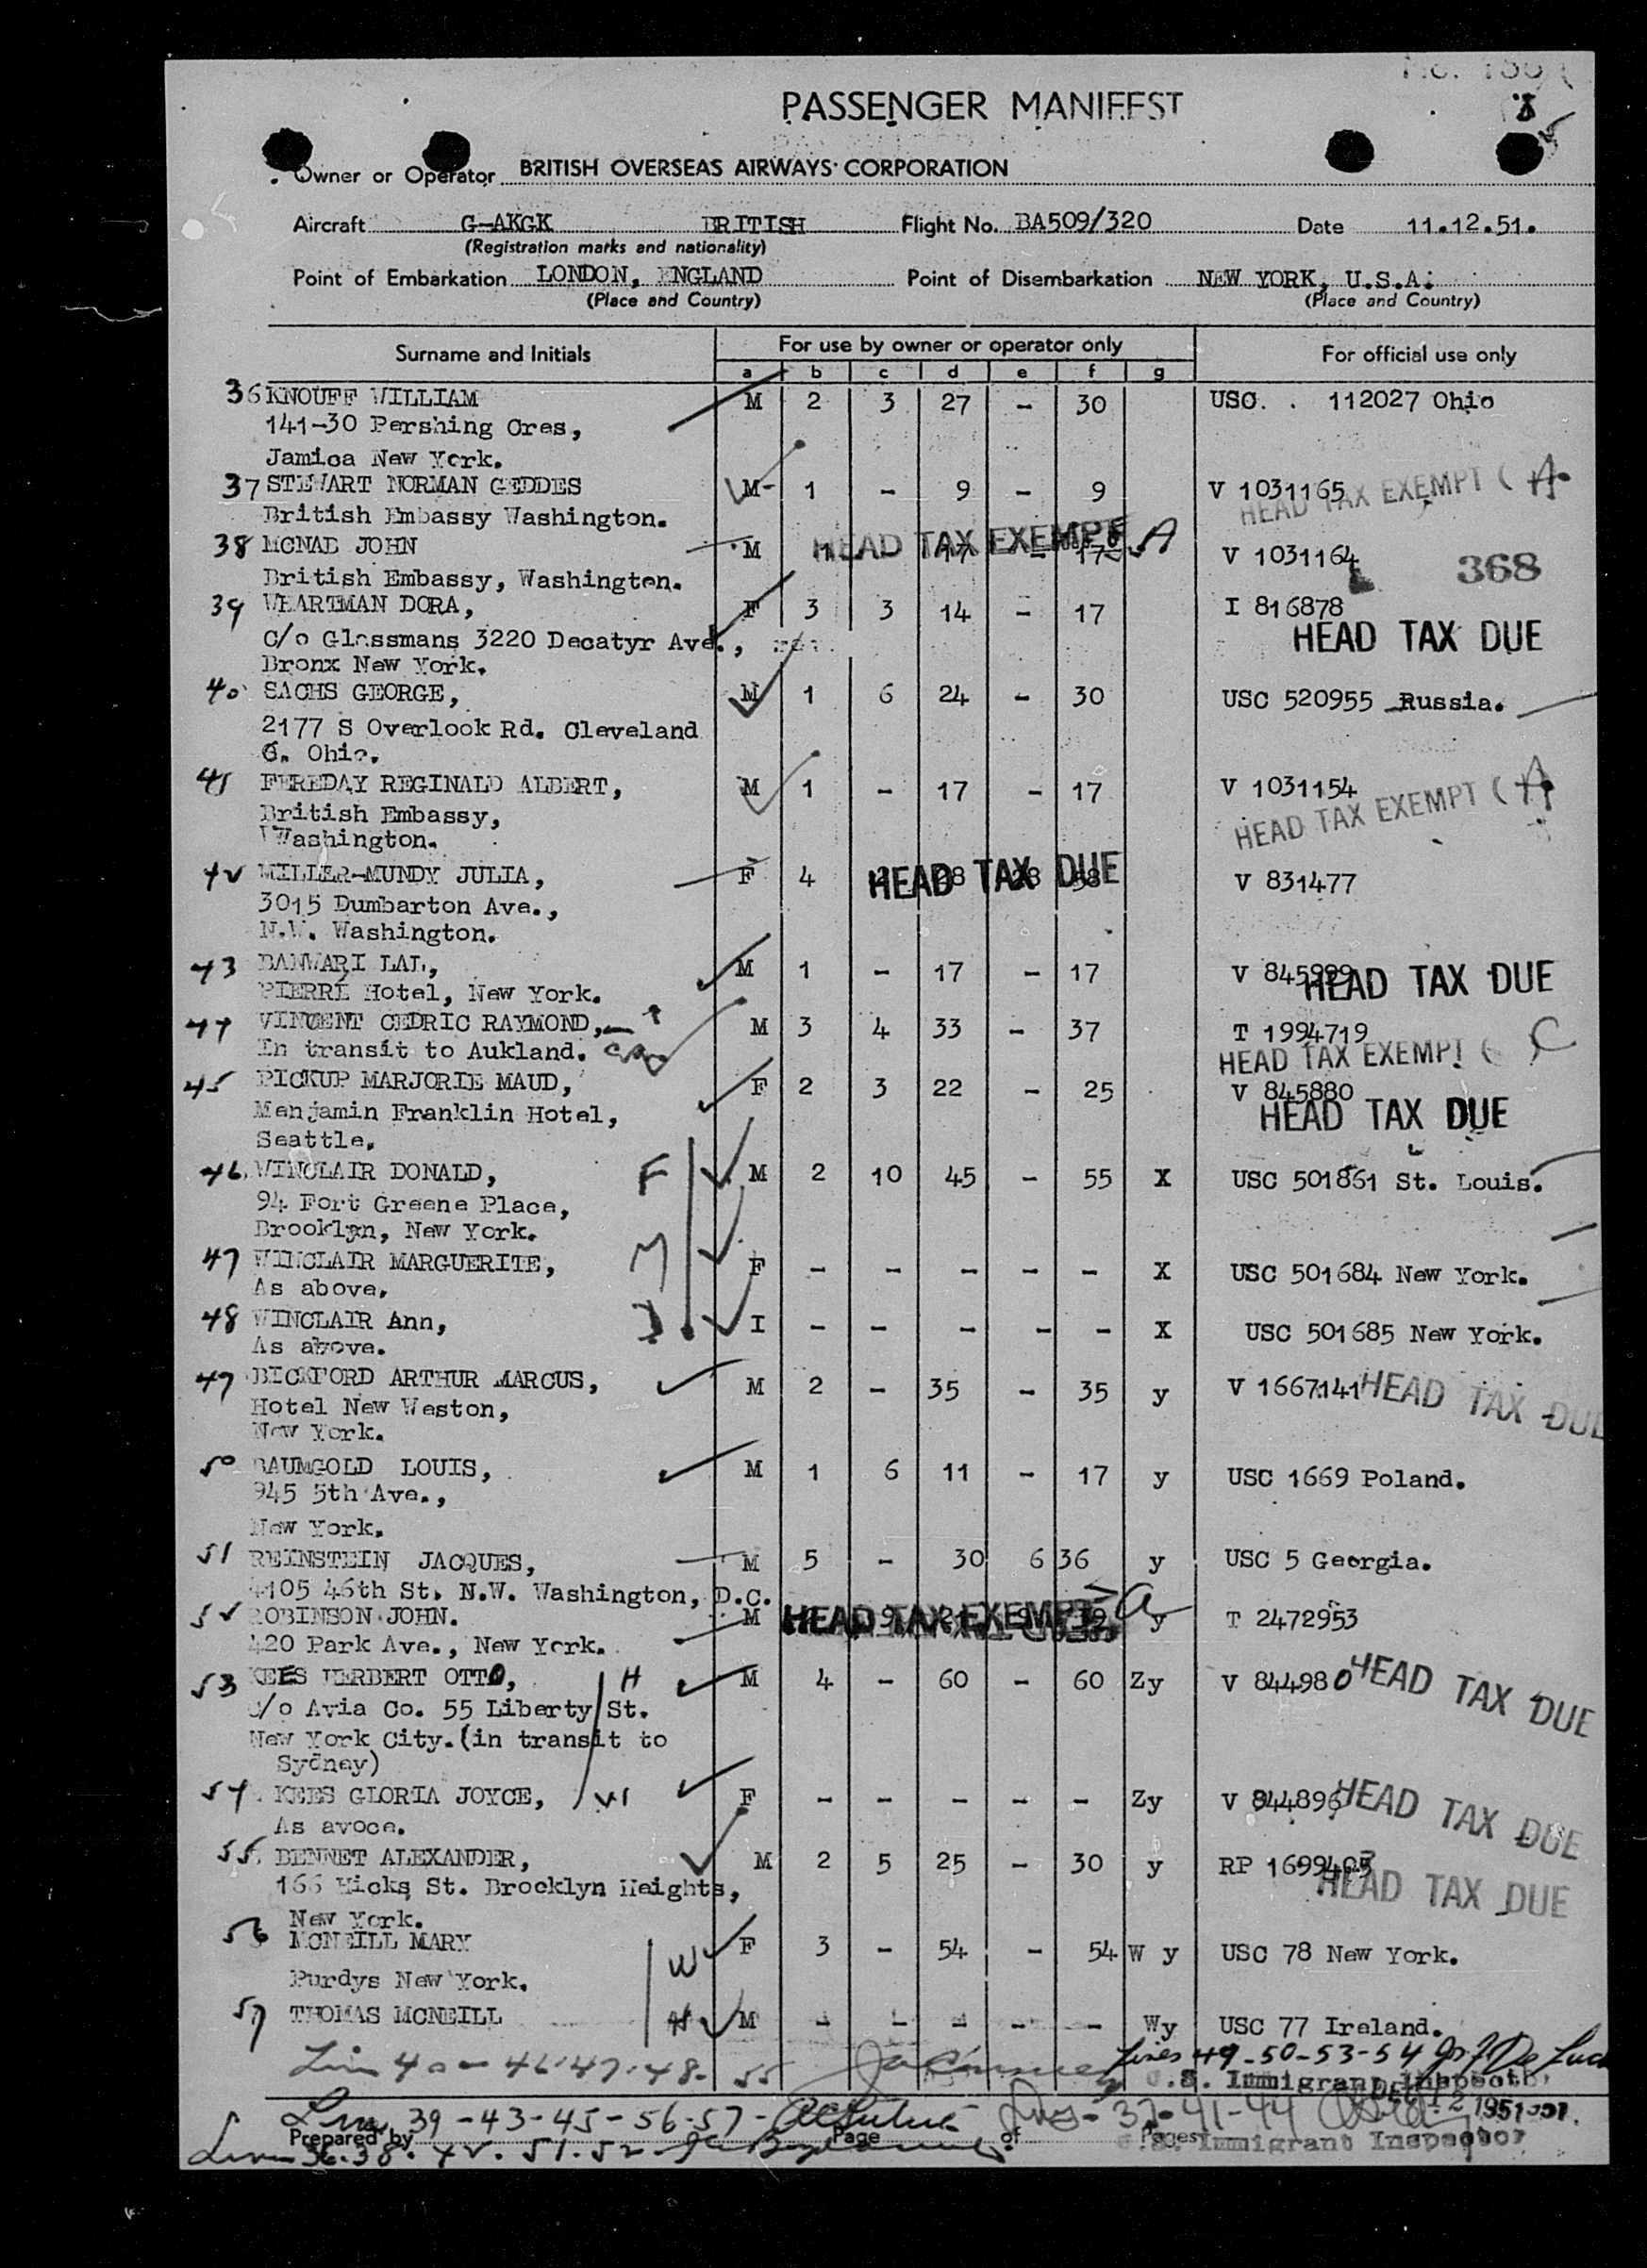 PASSENGER MANIFEST
Owner or Operator BRITISH OVERSEAS AIRWAYS CORPORATION
Aircraft G-AKGK BRITISH Flight No. BA509/320 Date 11.12.51.
(Registration marks and nationality)
Point of Embarkation LONDON, ENGLAND Point of Disembarkation NEW YORK, U.S.A.
(Place and Country) (Place and Country)
Surname and Initials For use by owner or operator only For official use only
a b c d e f g
36 KNOUFF WILLIAM M 2 3 27 - 30 USC. . 112027 Ohio
141-30 Pershing Cres,
Jamica New York.
37 STEWART NORMAN GEDDES M- 1 - 9 - 9 V 1031165 HEAD TAX EXEMPT ( A
British Embassy Washington.
38 MCNAB JOHN M 1 17 - 17 HEAD TAX EXEMPT A V 1031164
British Embassy, Washington. 368
39 WEARTMAN DORA, F 3 3 14 - 17 I 816878
C/o Glassmans 3220 Decatyr Ave., HEAD TAX DUE
Bronx New York.
40 SACHS GEORGE, M 1 6 24 - 30 USC 520955 Russia.
2177 S Overlook Rd. Cleveland
6. Ohio.
41 FEREDAY REGINALD ALBERT, M 1 - 17 - 17 V 1031154
British Embassy, HEAD TAX EXEMPT ( A
Washington.
42 MILLER-MUNDY JULIA, F 4 28 28 58 HEAD TAX DUE V 831477
3015 Dumbarton Ave.,
N.W. Washington.
43 BANWARI LAL, M 1 - 17 - 17 V 845999 HEAD TAX DUE
PIERRE Hotel, New York.
44 VINCENT CEDRIC RAYMOND, M 3 4 33 - 37 T 1994719
In transit to Aukland. HEAD TAX EXEMPT ( ) C
45 PICKUP MARJORIE MAUD, F 2 3 22 - 25 V 845880
Menjamin Franklin Hotel, HEAD TAX DUE
Seattle.
46. WINCLAIR DONALD, F M 2 10 45 - 55 X USC 501861 St. Louis.
94 Fort Greene Place,
Brooklyn, New York.
47 WINCLAIR MARGUERITE, M F - - - - - X USC 501684 New York.
As above.
48 WINCLAIR Ann, I - - - - - X USC 501685 New York.
As above.
49 BICKFORD ARTHUR MARCUS, M 2 - 35 - 35 y V 1667141 HEAD TAX DUE
Hotel New Weston,
New York.
50 BAUMGOLD LOUIS, M 1 6 11 - 17 y USC 1669 Poland.
945 5th Ave.,
New York.
51 REINSTEIN JACQUES, M 5 - 30 6 36 y USC 5 Georgia.
4105 46th St. N.W. Washington, D.C.
52 ROBINSON JOHN. M 9 HEAD TAX EXEMPT a y T 2472953
420 Park Ave., New York.
53 KEES HERBERT OTTO, H M 4 - 60 - 60 Zy V 844980 HEAD TAX DUE
C/o Avia Co. 55 Liberty St.
New York City. (in transit to
Sydney)
54 KEES GLORIA JOYCE, F - - - - - Zy V 844896 HEAD TAX DUE
As avoce.
55. BENNET ALEXANDER, M 2 5 25 - 30 y RP 1699405
166 Hicks St. Brocklyn Heights, HEAD TAX DUE
New York.
56 MCNEILL MARY W F 3 - 54 - 54 W y USC 78 New York.
Purdys New York.
57 THOMAS MCNEILL H M - - - - - Wy USC 77 Ireland.
Line 40 - 46.47.48. 55 Lines 49-50-53-54
U.S. Immigrant Inspector
Lines 39-43-45-56-57- Lines- 37-41-44 1951
Prepared by Page of Pages U.S. Immigrant Inspector
Lines 36.38. 42. 51.52.